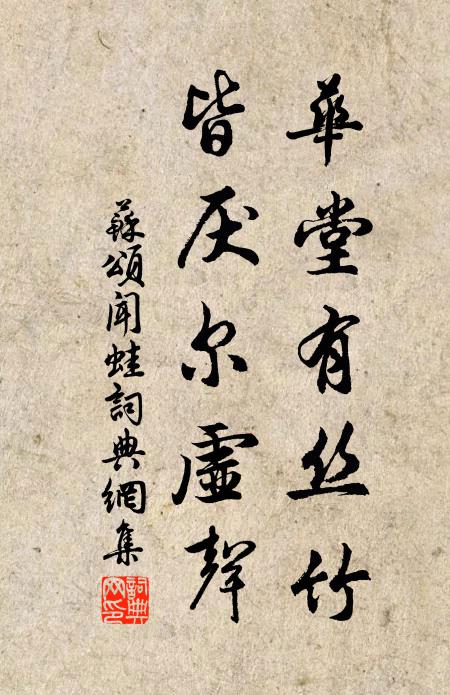 華堂有丝竹
皆厌尔虛聲
蘇頌聞蛙詞典網集
詞典网印